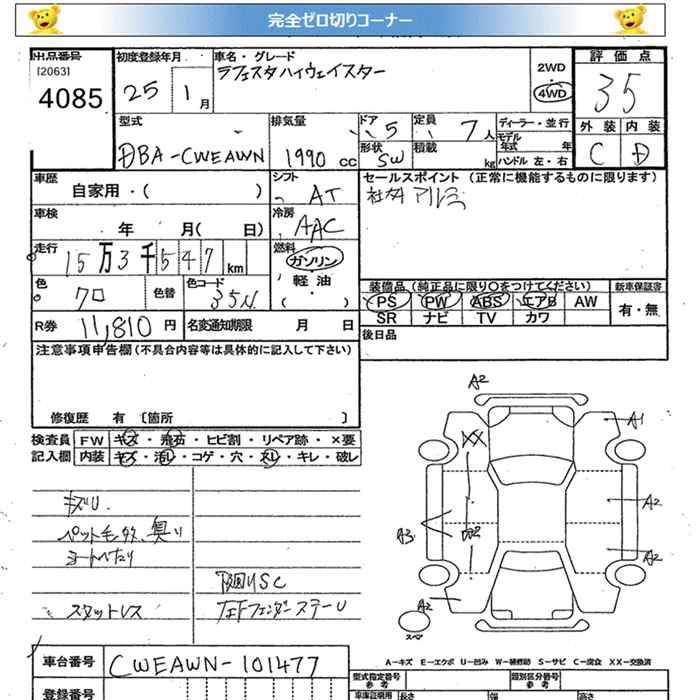 完全ゼロ切りコーナー
出品番号 初度登録年月 車名・グレード 評価点
[2063] ラフェスタハイウェイスター 2WD
4085 25 1月 4WD 35
型式 排気量 ドア 定員 ディーラー・並行 外装 内装
5 7人 モデル年式 年
DBA-CWEAWN 1990 cc 形状 SW 積載 kg ハンドル 左・右 C D
車歴 シフト セールスポイント (正常に機能するものに限ります)
自家用・( ) AT 社外アルミ
車検 冷房
年 月( 日) AAC
走行 燃料
15万3千547 km ガソリン
色 色替 色コード 軽油 装備品 (純正品に限り〇をつけてください) 新車保証書
クロ 35N ・( ) PS PW ABS エアB AW 有・無
SR ナビ TV カワ
R券 11,810 円 名変通知期限 月 日
注意事項申告欄 (不具合内容等は具体的に記入して下さい) 後日品
修復歴 有 [箇所 ]
検査員 FW キズ・飛石・ヒビ割・リペア跡・×要
記入欄 内装 キズ・汚レ・コゲ・穴・スレ・キレ・破レ
A2
A1
XX
A2
A3
A2
A2
キズU
ペット毛多、臭い
シートへたり
下回りSC
スタットレス
スペア
A-キズ E-エクボ U-凹み W-補修跡 S-サビ C-腐食 XX-交換済
車台番号 CWEAWN-101477
型式指定番号 参考 類別区分番号 参考
登録番号 車庫証明用 長さ 幅 高さ